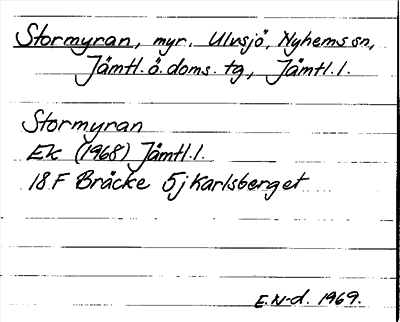 Stormyran, myr, Ulvsjö, Nyhems sn,
Jämtl. ö. doms. tg, Jämtl. l.
Stormyran
Ek (1968) Jämtl. l.
18 F Bräcke 5j Karlsberget
E. N-d. 1969.